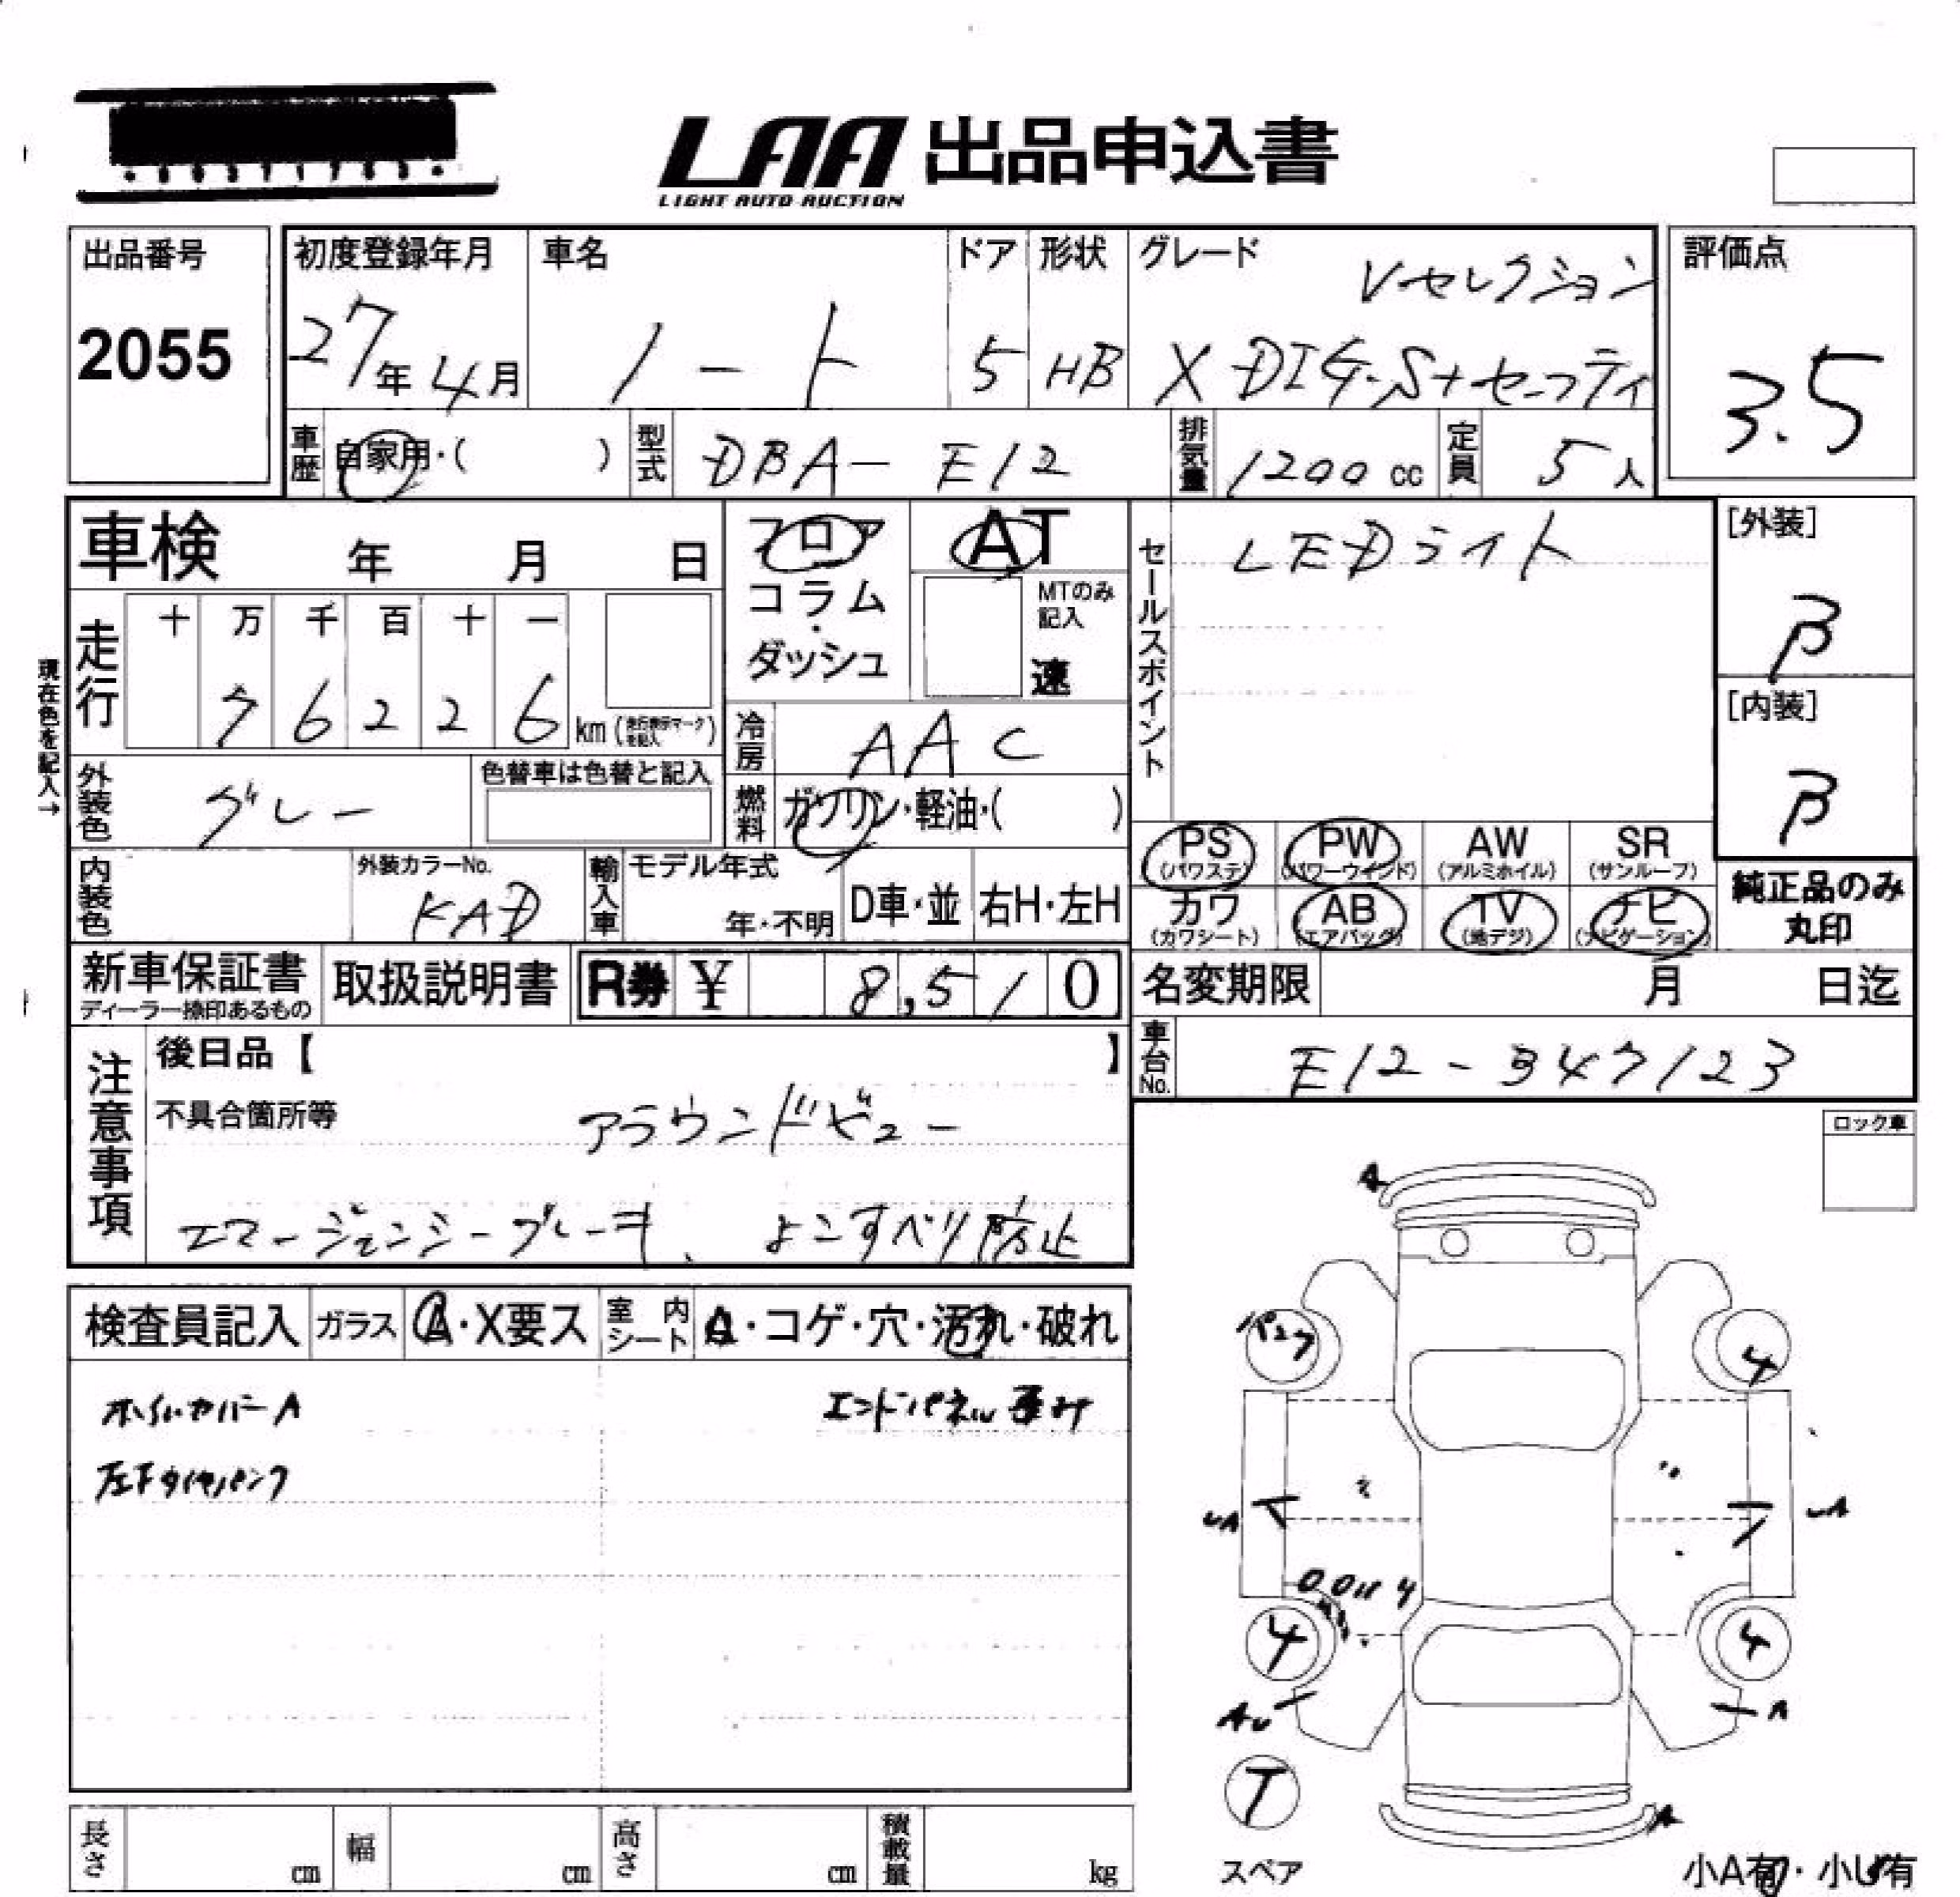 LAA 出品申込書
LIGHT AUTO AUCTION
出品番号
2055
初度登録年月
27年4月
車名
ノート
ドア
5
形状
HB
グレード
Vセレクション
X DIG-S+セーフティ
評価点
3.5
車歴
自家用・( )
型式
DBA-E12
排気量
1200cc
定員
5人
車検 年 月 日
フロア
コラム
・
ダッシュ
AT
MTのみ記入
速
セールスポイント
LEDライト
[外装]
β
[内装]
β
現在色を記入→
走行
十 万 千 百 十 一
7 6 2 2 6 km (走行表示マークを記入)
冷房
AAC
外装色
グレー
色替車は色替と記入
燃料
ガソリン・軽油・( )
PS
(パワステ)
PW
(パワーウインド)
AW
(アルミホイル)
SR
(サンルーフ)
内装色
外装カラーNo.
KAD
輸入車
モデル年式
年・不明
D車・並
右H・左H
カワ
(カワシート)
AB
(エアバッグ)
TV
(地デジ)
ナビ
(ナビゲーション)
純正品のみ
丸印
新車保証書
ディーラー捺印あるもの
取扱説明書
R券 ¥ 8,510
名変期限 月 日迄
車台No.
E12-347123
注意事項
後日品【 】
不具合箇所等
アラウンドビュー
エマージェンシーブレーキ、よこすべり防止
ロック車
検査員記入
ガラス
A・X要ス
室内シート
A・コゲ・穴・汚れ・破れ
ホイルカバーA
エンドパネル歪み
左Fタイヤパンク
A
パンク
4
UA
UA
4
4
AU
A
T
スペア
A
長さ cm
幅 cm
高さ cm
積載量 kg
小A有・小U有